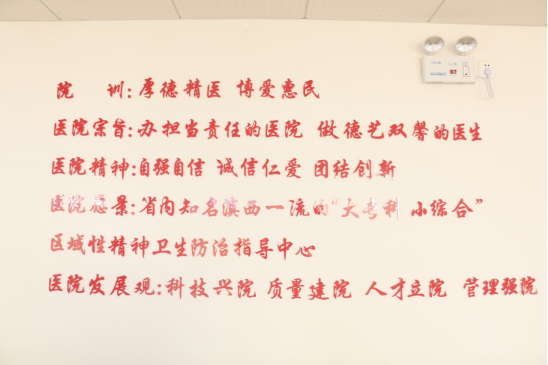 院 训:厚德精医 博爱惠民
医院宗旨:办担当责任的医院 做德艺双馨的医生
医院精神:自强自信 诚信仁爱 团结创新
医院愿景:省内知名滇西一流的“大专科 小综合”
区域性精神卫生防治指导中心
医院发展观:科技兴院 质量建院 人才立院 管理强院